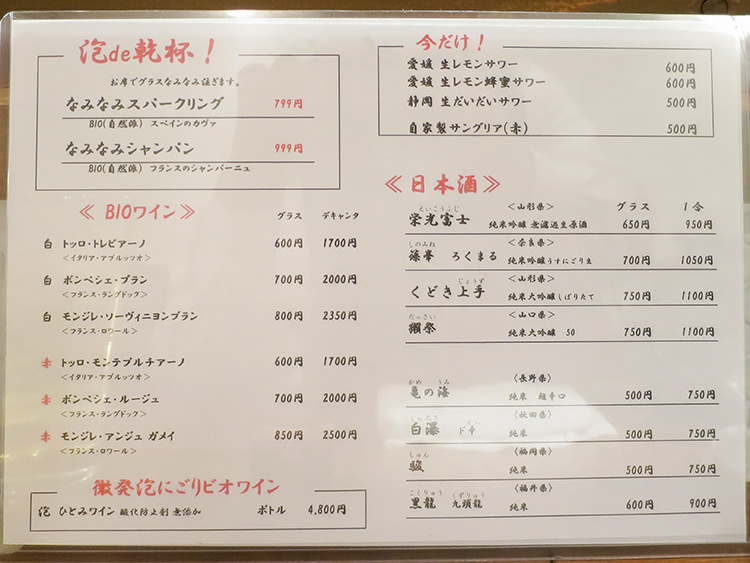 泡de乾杯！
お席でグラスなみなみ注ぎます。
なみなみスパークリング 799円
BIO(自然派) スペインのカヴァ
なみなみシャンパン 999円
BIO(自然派) フランスのシャンパーニュ
≪ BIOワイン≫ グラス デキャンタ
白 トッロ・トレビアーノ 600円 1700円
<イタリア・アブルッツオ>
白 ボンペシェ・ブラン 700円 2000円
<フランス・ラングドック>
白 モンジレ・ソーヴィニヨンブラン 800円 2350円
<フランス・ロワール>
赤 トッロ・モンテプルチアーノ 600円 1700円
<イタリア・アブルッツオ>
赤 ボンペシェ・ルージュ 700円 2000円
<フランス・ラングドック>
赤 モンジレ・アンジュ ガメイ 850円 2500円
<フランス・ロワール>
微発泡にごりビオワイン
泡 ひとみワイン 酸化防止剤 無添加 ボトル 4,800円
今だけ！
愛媛 生レモンサワー 600円
愛媛 生レモン蜂蜜サワー 600円
静岡 生だいだいサワー 500円
自家製サングリア(赤) 500円
≪日本酒≫
<山形県> グラス 1合
えいこうふじ
栄光富士 純米吟醸 無濾過生原酒 650円 950円
しのみね <奈良県>
篠峯 ろくまる 純米吟醸うすにごり生 700円 1050円
じょうず <山形県>
くどき上手 純米大吟醸しぼりたて 750円 1100円
だっさい <山口県>
獺祭 純米大吟醸 50 750円 1100円
かめ うみ <長野県>
亀の海 純米 超辛口 500円 750円
しらたき かん <秋田県>
白瀑 ド辛 純米 500円 750円
しゅん <福岡県>
駿 純米 500円 750円
こくりゅう くずりゅう <福井県>
黒龍 九頭龍 純米 600円 900円